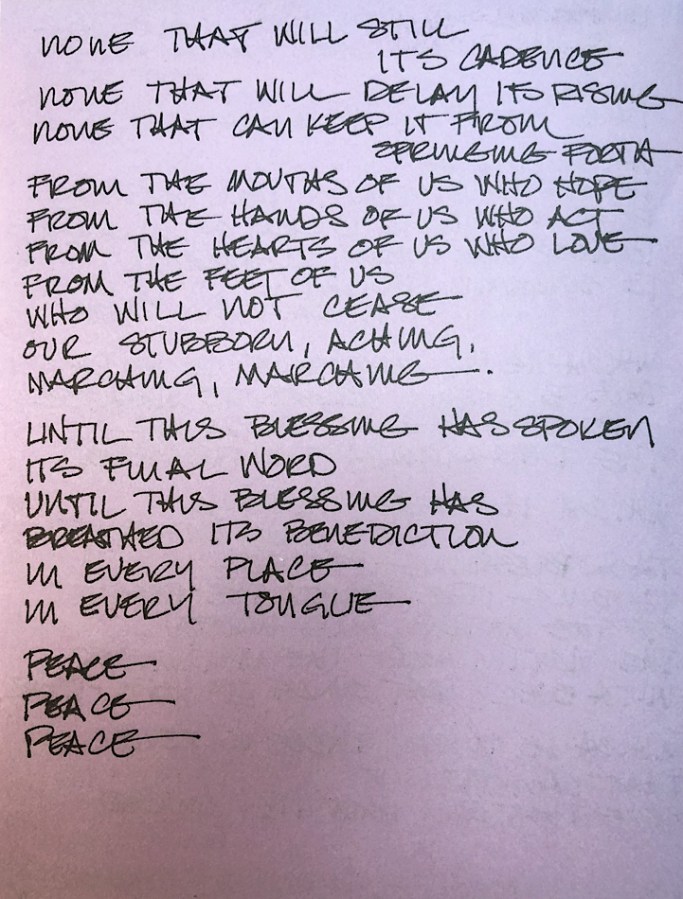 NONE THAT WILL STILL
ITS CADENCE
NONE THAT WILL DELAY ITS RISING
NONE THAT CAN KEEP IT FROM
SPRINGING FORTH
FROM THE MOUTHS OF US WHO HOPE
FROM THE HANDS OF US WHO ACT
FROM THE HEARTS OF US WHO LOVE
FROM THE FEET OF US
WHO WILL NOT CEASE
OUR STUBBORN, ACHING,
MARCHING, MARCHING.
UNTIL THIS BLESSING HAS SPOKEN
ITS FINAL WORD
UNTIL THIS BLESSING HAS
BREATHED ITS BENEDICTION
IN EVERY PLACE
IN EVERY TONGUE
PEACE
PEACE
PEACE